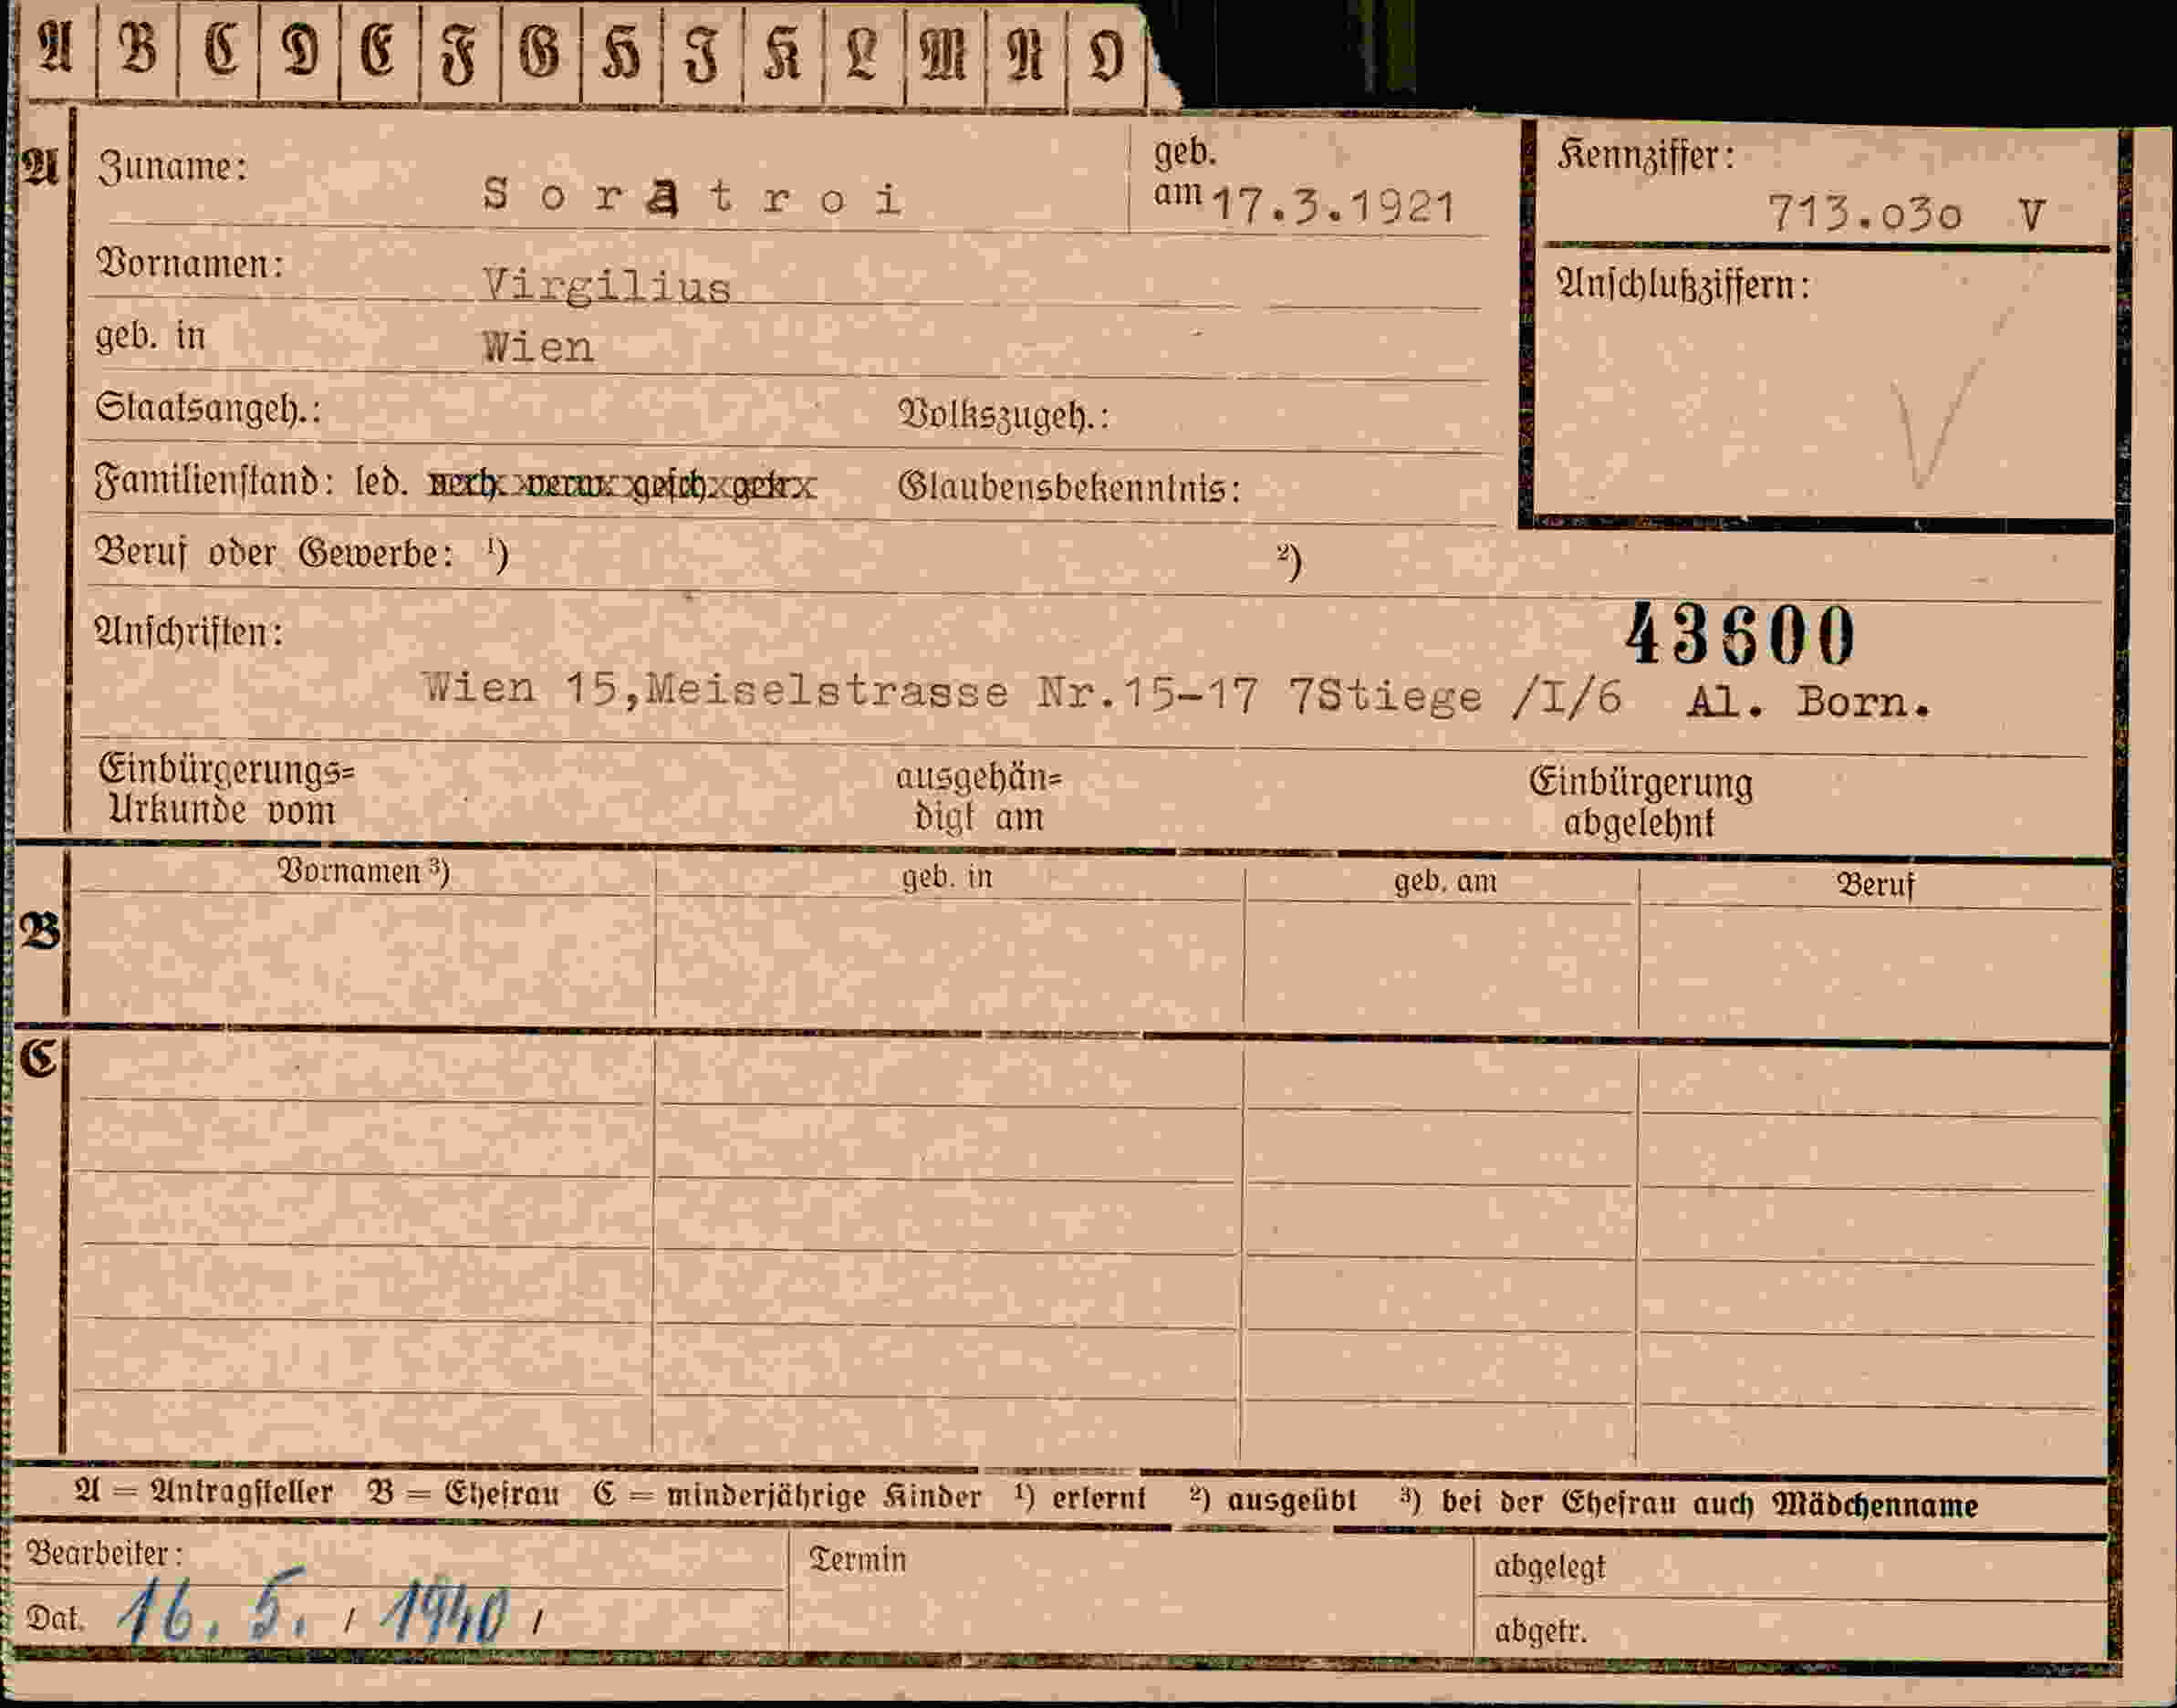 A B C D E F G H I K L M N O
A Zuname: Soratroi geb. am 17.3.1921 Kennziffer: 713.030 V
Vornamen: Virgilius Anschlußziffern:
geb. in Wien
Staatsangeh.: Volkszugeh.:
Familienstand: led. verh. verw. gesch. getr. Glaubensbekenntnis:
Beruf oder Gewerbe: ¹) ²)
Anschriften: 43600
Wien 15,Meiselstrasse Nr.15-17 7Stiege /I/6 Al. Born.
Einbürgerungs= ausgehän= Einbürgerung
Urkunde vom digt am abgelehnt
Vornamen ³) geb. in geb. am Beruf
B
C
A = Antragsteller B = Ehefrau C = minderjährige Kinder ¹) erlernt ²) ausgeübt ³) bei der Ehefrau auch Mädchenname
Bearbeiter: Termin abgelegt
Dat. 16. 5. / 1940 / abgetr.